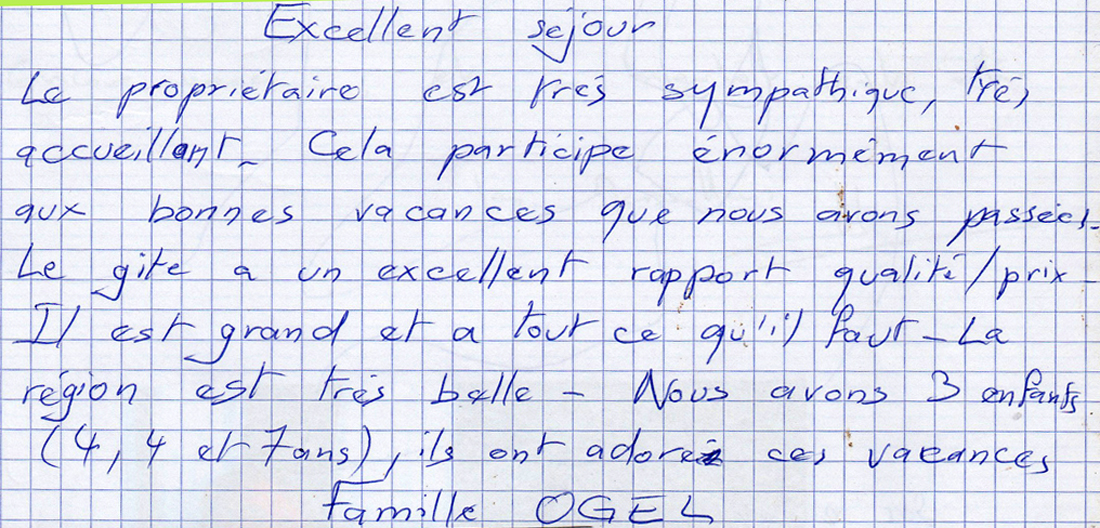 Excellent séjour
Le propriétaire est très sympathique, très
accueillant. Cela participe énormément
aux bonnes vacances que nous avons passées.
Le gite a un excellent rapport qualité/prix -
Il est grand et a tout ce qu'il faut - La
région est très belle - Nous avons 3 enfants
(4, 4 et 7 ans), ils ont adoré ces vacances
Famille OGEL